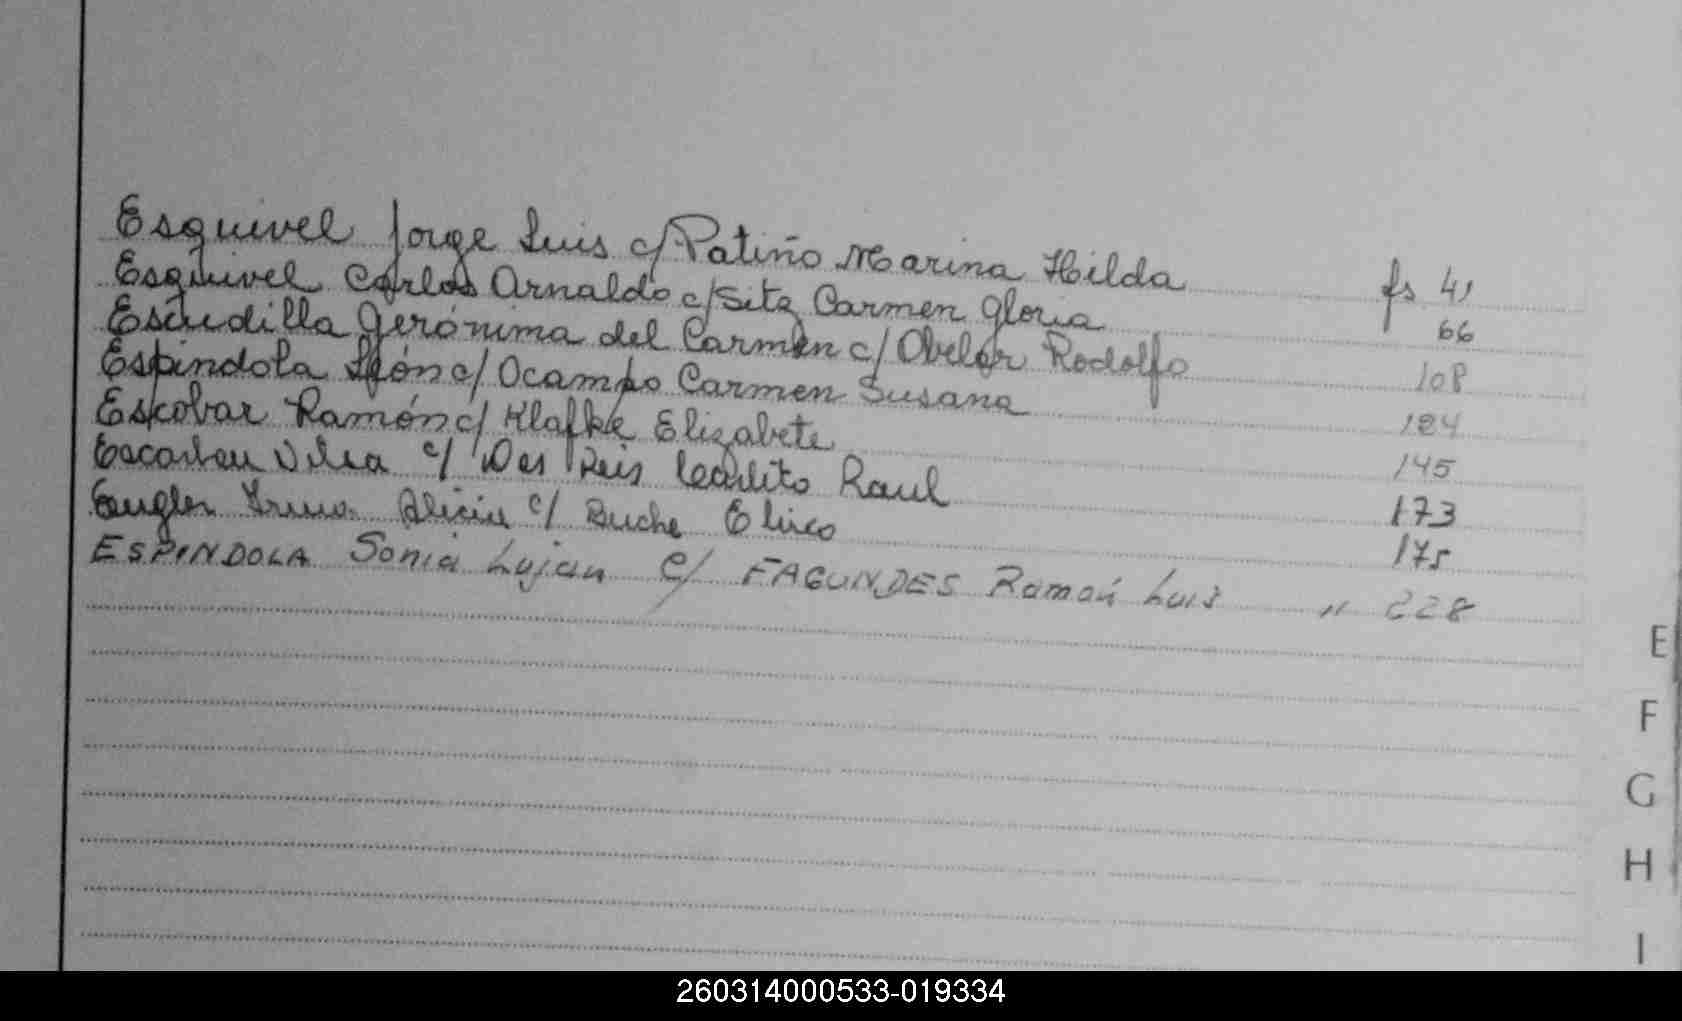 Esquivel Jorge Luis c/ Patiño Marina Hilda fs 41
Esquivel Carlos Arnaldo c/ Sitz Carmen Gloria 66
Escudilla Gerónima del Carmen c/ Obelar Rodolfo 108
Espindola León c/ Ocampo Carmen Susana 124
Escobar Ramón c/ Klafke Elizabete 145
c/ Dos Reis Carlito Raul 173
Alicia c/ 175
ESPINDOLA Sonia Lujan C/ FAGUNDES Ramón Luis " 228
E
F
G
H
I
260314000533-019334